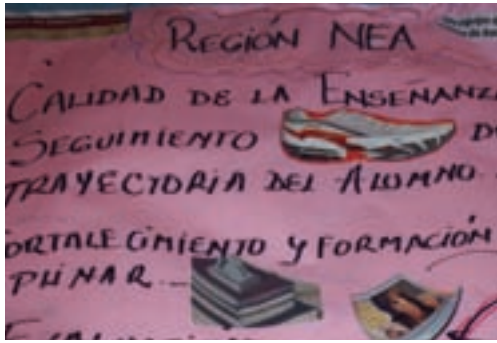 REGIÓN NEA
CALIDAD DE LA ENSEÑANZ
SEGUIMIENTO D
TRAYECTORIA DEL ALUMNO
ORTALECIMIENTO Y FORMACIÓN
PLINAR